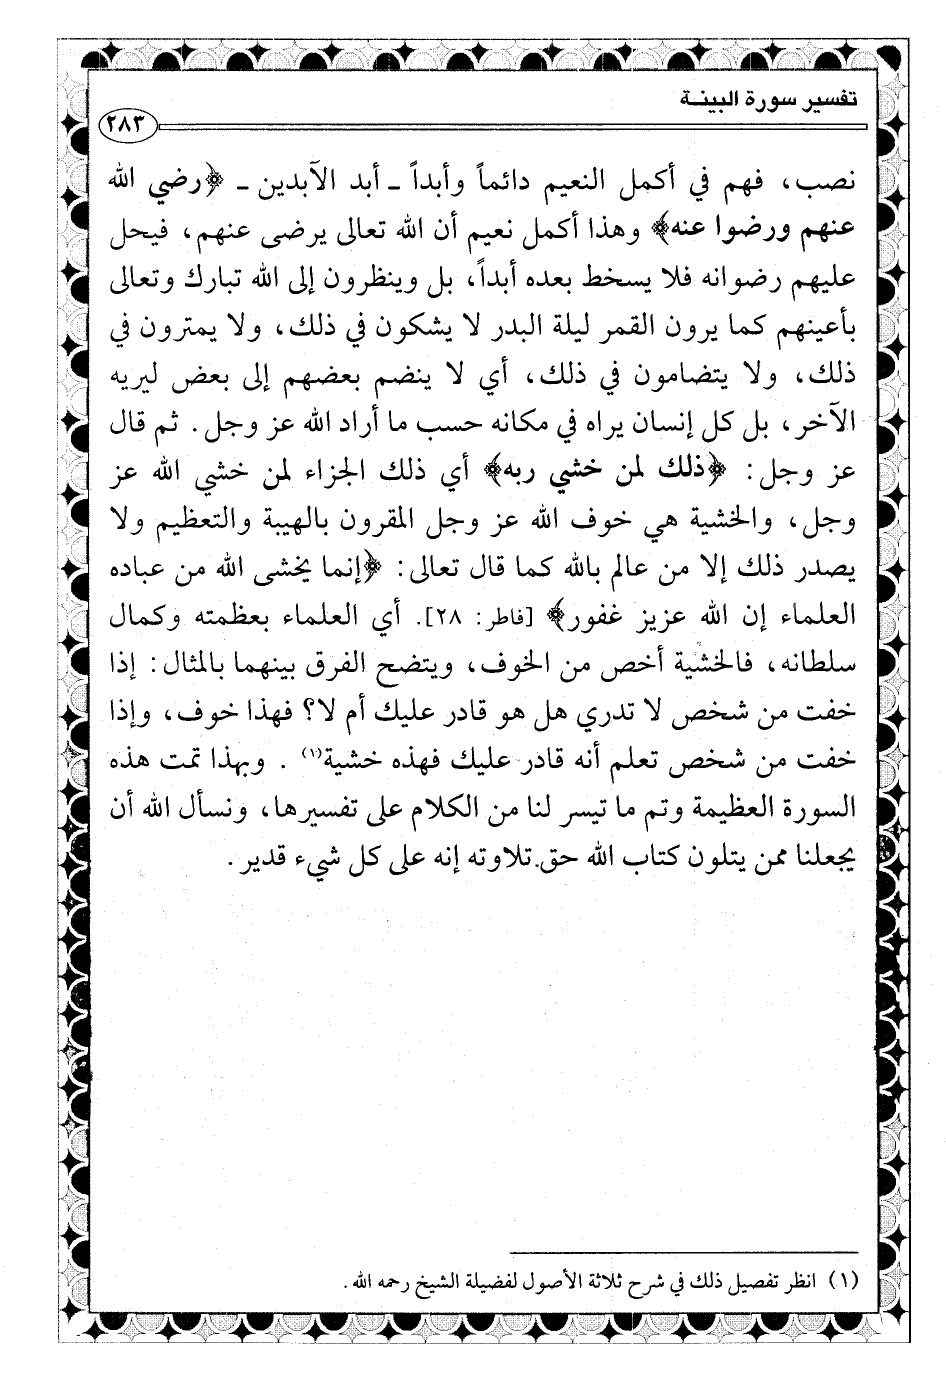 تفسير سورة البينة
٢٨٣
نصب، فهم في أكمل النعيم دائماً وأبداً ـ أبد الآبدين ـ ﴿رضي الله
عنهم ورضوا عنه﴾ وهذا أكمل نعيم أن الله تعالى يرضى عنهم، فيحل
عليهم رضوانه فلا يسخط بعده أبداً، بل وينظرون إلى الله تبارك وتعالى
بأعينهم كما يرون القمر ليلة البدر لا يشكون في ذلك، ولا يمترون في
ذلك، ولا يتضامون في ذلك، أي لا ينضم بعضهم إلى بعض ليريه
الآخر، بل كل إنسان يراه في مكانه حسب ما أراد الله عز وجل. ثم قال
عز وجل: ﴿ذلك لمن خشي ربه﴾ أي ذلك الجزاء لمن خشي الله عز
وجل، والخشية هي خوف الله عز وجل المقرون بالهيبة والتعظيم ولا
يصدر ذلك إلا من عالم بالله كما قال تعالى: ﴿إنما يخشى الله من عباده
العلماء إن الله عزيز غفور﴾ [فاطر: ٢٨]. أي العلماء بعظمته وكمال
سلطانه، فالخشية أخص من الخوف، ويتضح الفرق بينهما بالمثال: إذا
خفت من شخص لا تدري هل هو قادر عليك أم لا؟ فهذا خوف، وإذا
خفت من شخص تعلم أنه قادر عليك فهذه خشية(١) . وبهذا تمت هذه
السورة العظيمة وتم ما تيسر لنا من الكلام على تفسيرها، ونسأل الله أن
يجعلنا ممن يتلون كتاب الله حق تلاوته إنه على كل شيء قدير.
(١) انظر تفصيل ذلك في شرح ثلاثة الأصول لفضيلة الشيخ رحمه الله.